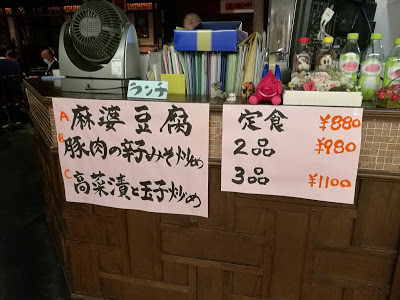 ランチ
A 麻婆豆腐
B 豚肉の辛みそ炒め
C 高菜漬と玉子炒め
定食 ¥880
2品 ¥980
3品 ¥1100